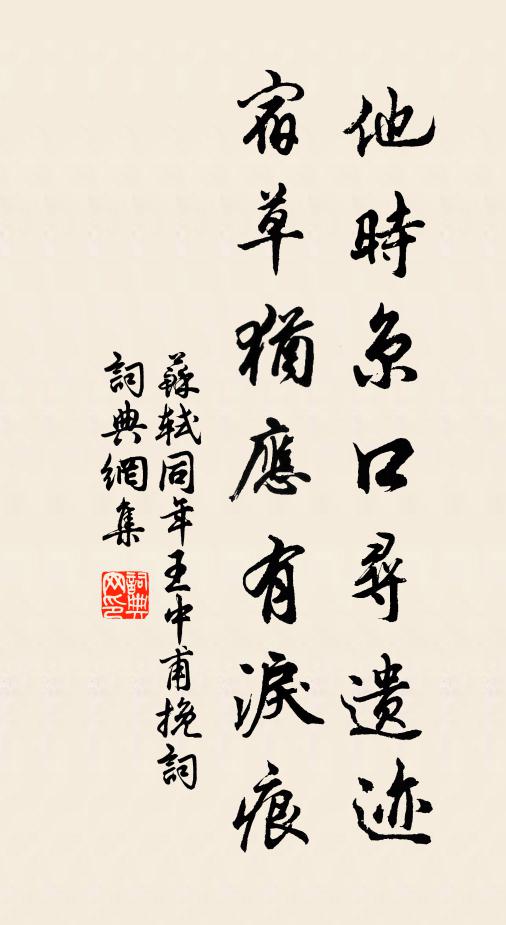 他時京口尋遺迹
宿草猶應有淚痕
蘇軾同年王中甫挽詞
詞典網集
詞典网印